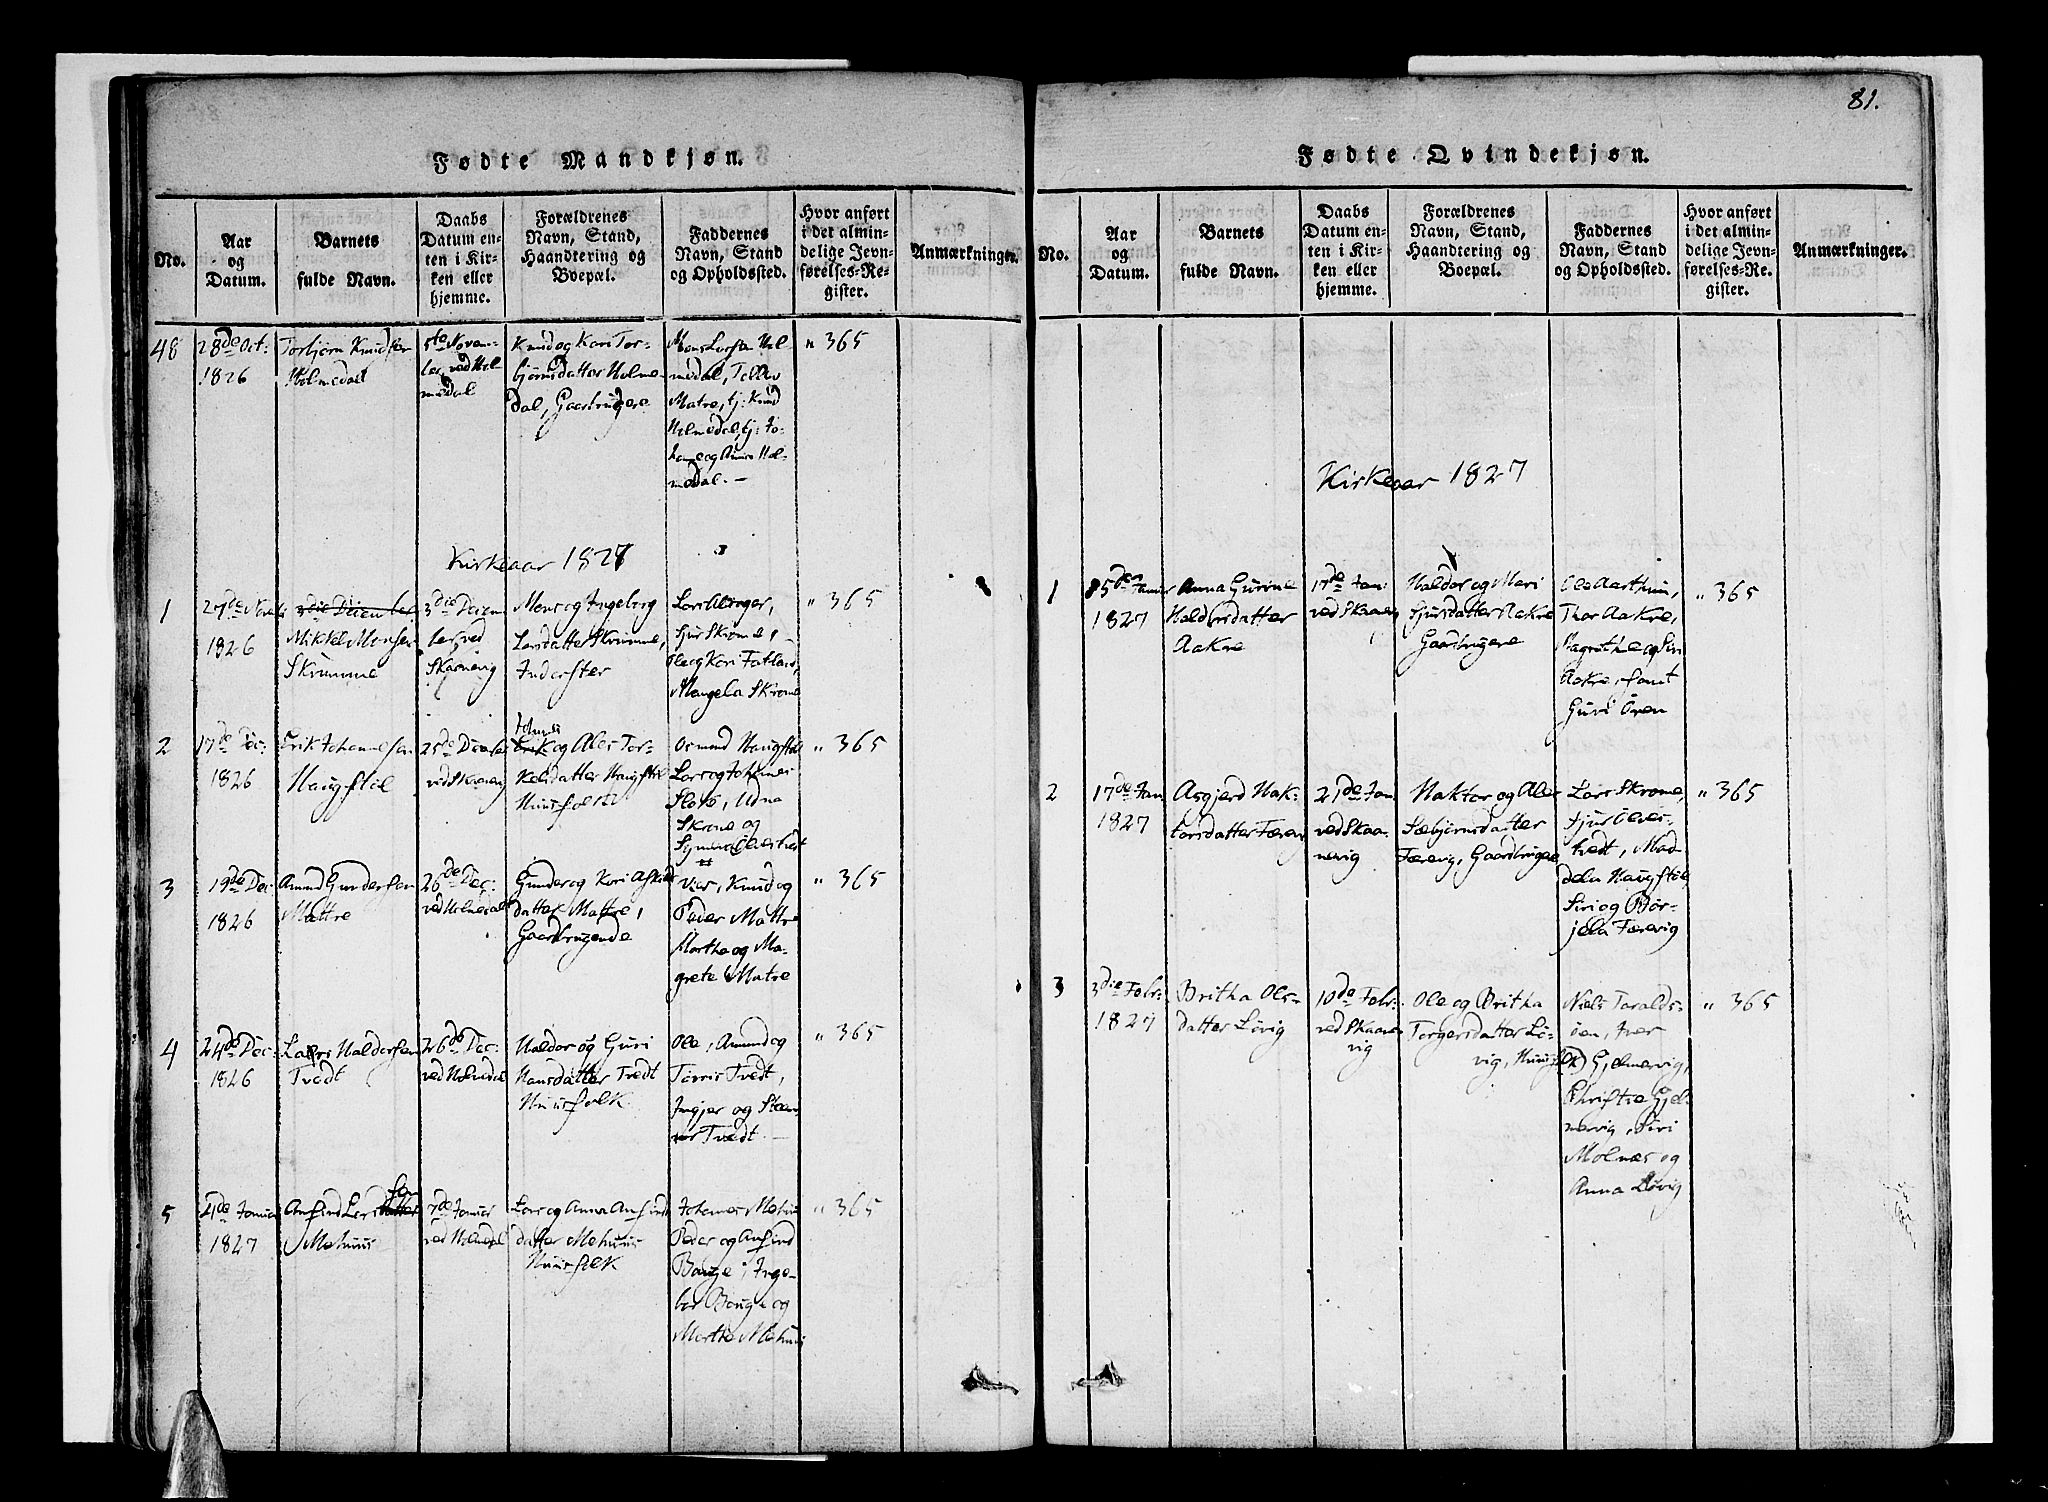 81.
Fødte Mandkjøn.
No.
Aar
og
Datum.
Barnets
fulde Navn.
Daabs
Datum en-
ten i Kir-
ken eller
hjemme.
Forældrenes
Navn, Stand,
Haandtering og
Boepæl.
Faddernes
Navn, Stand
og Opholdssted.
Hvor anført
i det almin-
delige Jevn-
førelses-Re-
gister.
Anmærkninger.
48
28de Oct:
1826
Torbjørn Knudsen
Holmedal
5te Novem-
ber ved Hol
medal
Knud og Kari Tor-
bjørnsdatter Holme-
dal, Gaardbrugere
Mons Larsen Hol-
medal, Tollev
Matre, tj: Knud
Holmedal, tj: Jo-
hanne og Anna Hol-
medal. —
" 365
Kirkeaar 1827
1
27de Novb:
1826
Mikkel Monsen
Skrumme
3die Decem
ber ved
Skaanevig
Mons og Ingeborg
Larsdatter Skrumme,
Inderster
Lars
Sjur Skrome,
Ole og Kari Fatland,
Mangela Skrome
" 365
2
17de Dec:
1826
Erik Johannesen
Haugstøl
25de Decbr
ved Skaanevig
Johannes
og Ales Tor-
kelsdatter Haugstøl
Huusfolk
Osmund Haugstøl
Lars og Johannes
Skrome og
" 365
3
19de Dec:
1826
Amund Gundersen
Mattre
26de Dec:
ved Holmedal
Gunder og Kari
datter Mattre,
Gaardbrugende
Knud og
Peder Mattre
Martha og Ma-
grete Matre
" 365
4
24de Dec:
1826
Lars Haldorsen
Tvedt
26de Dec:
ved Holmedal
Haldor og Guri
Hansdatter Tvedt
Huusfolk
Ole, Amund og
Torris Tvedt,
Ingjer og Steen-
vor Tvedt —
" 365
5
1827
Anfind Lars
sen
Mehuus
7de Januar
ved Holmedal
Lars og Anna Anfinds
datter Mehuus
Huusfolk
Johannes Mehuus
Peder og Anfind
Bauge, Inge-
bor Bauge og
Martha Mehuus
" 365
Fødte Qvindekjøn.
No.
Aar
og
Datum.
Barnets
fulde Navn.
Daabs
Datum en-
ten i Kir-
ken eller
hjemme.
Forældrenes
Navn, Stand,
Haandtering og
Boepæl.
Faddernes
Navn, Stand
og Opholdssted.
Hvor anført
i det almin-
delige Jevn-
førelses-Re-
gister.
Anmærkninger.
Kirkeaar 1827
1
5de Januar
1827
Anna Gurine
Haldorsdatter
Aakre
17de Jan:
ved Skaanevig
Haldor og Mari
Sjursdatter Aakre
Gaardbrugere
Ole Aarthun,
Thor Aakre,
Magrethe og Siri
Aakre, samt
Guri Øren
" 365
2
17de Jan
1827
Asgjerd Hak-
torsdatter Færevig
21de Jan:
ved Skaa-
nevig
Haktor og Ales
Sæbjørnsdatter
Færevig, Gaardbrugere
Lars Skrome,
Sjur Øvers-
tvedt, Mad-
dela Haugstøl,
Siri og Bør-
jela Færevig
" 365
3
3die Febr:
1827
Britha Ols-
datter Løvig
10de Febr:
ved Skaane-
vig
Ole og Britha
Torgersdatter Lø-
vig, Huusfolk
Niels Taralds-
øen, Iver
Gjelmervig,
Christne Gjel-
mervig, Siri
Molnæs og
Anna Løvig
" 365